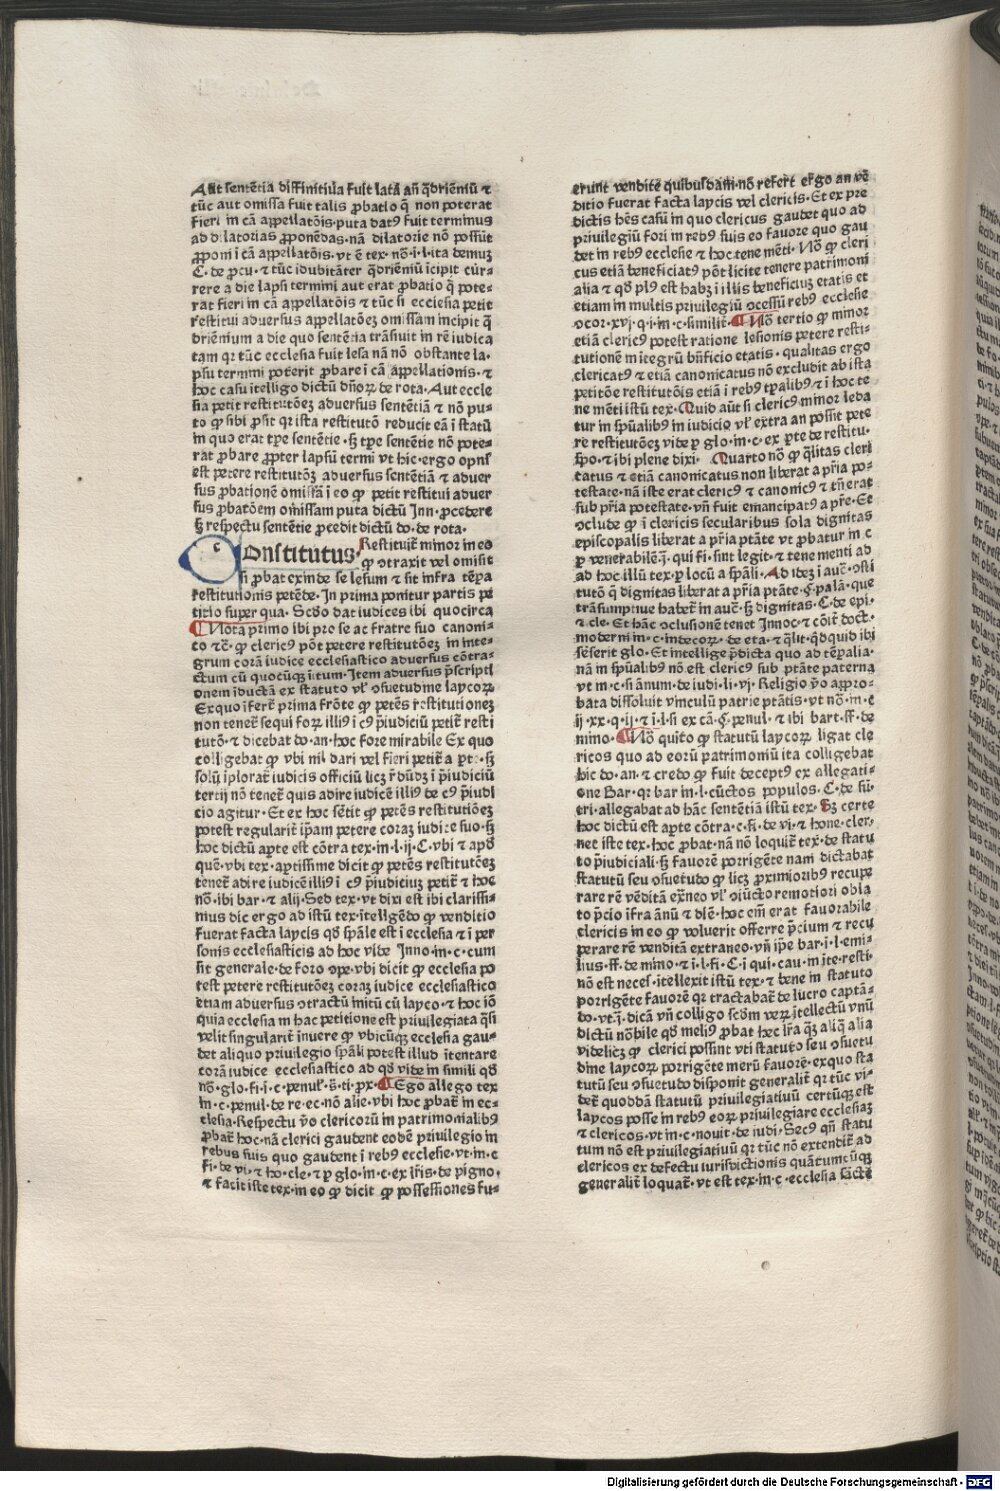 Aut sentētia diffinitiua fuit lata añ q̄driēniū ⁊
tūc aut omissa fuit talis ꝓbatio q̄ non poterat
fieri in cā appellatōis·puta datꝰ fuit terminus
ad dilatorias ꝓponēdas·nā dilatorie nō possūt
ꝓponi ī cā appellatōis·vt ē tex·nō·i·l·ita demuꝫ
C·de ꝓcu·⁊ tūc īdubitāter q̄driēniū īcipit cur-
rere a die lapsi termini aut erat ꝓbatio q̄ pote-
rat fieri in cā appellatōis ⁊ tūc si ecclesia petit
restitui aduersus appellatōeꝫ omissam incipit q̄
driēnium a die quo sentētia trāsiuit in rē iudica
tam qꝛ tūc ecclesia fuit lesa nā nō obstante la-
psu termini poterit ꝓbare ī cā appellationis·⁊
hoc casu ītelligo dictū dñoꝝ de rota·Aut eccle
sia petit restitutōeꝫ aduersus sentētiā ⁊ nō pu-
to ꝙ sibi ꝓsit qꝛ ista restitutō reducit eā ī statū
in quo erat tꝑe sentētie·ꝫ tꝑe sentētie nō pote-
rat ꝓbare ꝓpter lapsū termi vt hic·ergo opꝫ
est petere restitutōꝫ aduersus sentētiā ⁊ aduer
sus ꝓbationē omissā ī eo ꝙ petit restitui aduer
sus ꝓbatōem omissam puta dictū Inn·ꝓcedere
ꝫ respectu sentētie ꝓcedit dictū do·de rota·
c
Onstitutus· Restituit̄ minor in eo
ꝙ ꝯtraxit vel omisit
si ꝓbat exinde se lesum ⁊ sit infra tēpa
restitutionis petēde·In prima ponitur partis pe
titio super qua·Scd̄o dat iudices ibi quocirca
¶Nota primo ibi pro se ac fratre suo canoni-
co ⁊c̄·ꝙ clericꝰ pōt petere restitutōeꝫ in inte-
grum corā iudice ecclesiastico aduersus cōtra-
ctum cū quocūqꝫ ītum·Item aduersus p̄scripti
onem īductā ex statuto vl̓ ꝯsuetudine laycoꝝ
Ex quo īfert̄ prima frōte ꝙ petēs restitutioneꝫ
non tenet̄ sequi foꝝ illiꝰ ī cꝰ p̄iudiciū petit̄ resti
tutō·⁊ dicebat do·an·hoc fore mirabile Ex quo
colligebat ꝙ vbi nil dari vel fieri petit̄ a ꝑte·ꝫ
solū īplorat̄ iudicis officiū licꝫ r̄dūdꝫ ī p̄iudiciū
tertij nō tenet̄ quis adire iudicē illiꝰ de cꝰ p̄iudi
cio agitur·Et ex hoc sētit ꝙ petēs restitutiōeꝫ
potest regularit̄ ip̄am petere coraꝫ iudice suo·ꝫ
hoc dictū aꝑte est cōtra tex·in·l·ij·C·vbi ⁊ apd̓
quē·vbi tex·aptissime dicit ꝙ petēs restitutōeꝫ
tenet̄ adire iudicē illiꝰ ī cꝰ p̄iudiciuꝫ petit̄ ⁊ hoc
nō·ibi bar·⁊ alij·Sed tex·vt dixi est ibi clarissi-
mus dic ergo ad istū tex·ītellgēdo ꝙ venditio
fuerat facta laycis qd̓ spāle est ī ecclesia ⁊ ī per
sonis ecclesiasticis ad hoc vide Inno·in·c·cum
sit generale·de foro ꝯpe·vbi dicit ꝙ ecclesia po
test petere restitutōeꝫ coraꝫ iudice ecclesiastico
etiam aduersus ꝯtractū initū cū layco·⁊ hoc iō
quia ecclesia in hac petitione est priuilegiata q̄si
velit singularit̄ inuere ꝙ vbicūqꝫ ecclesia gau-
det aliquo priuilegio spāli potest illud ītentare
corā iudice ecclesiastico ad qd̓ vide in simili qd̓
nō·glo·fi·ī·c·penul̓·s̄·ti·pꝛ·¶Ego allego tex
in·c·penul·de re·ec·nō alie·vbi hoc ꝓbat̄ in ec-
clesia·Respectu v̄o clericorū in patrimonialibꝰ
ꝓbat̄ hoc·nā clerici gaudent eodē priuilegio in
rebus suis quo gaudent ī rebꝰ ecclesie·vt·in·c·
fi·de vi·⁊ ho·cle·⁊ ꝑ glo·in·c·ex lr̄is·de pigno·
⁊ facit iste tex·in eo ꝙ dicit ꝙ possessiones fu-
erunt vendite quibusdam·nō refert ergo an vē
ditio fuerat facta laycis vel clericis·Et ex pre
dictis hēs casū in quo clericus gaudet quo ad
priuilegiū fori in rebꝰ suis eo fauore quo gau
det in rebꝰ ecclesie ⁊ hoc tene mēti·Nō ꝙ cleri
cus etiā beneficiatꝰ pōt licite tenere patrimoni
alia ⁊ qd̓ plꝰ est habꝫ ī illis beneficiuꝫ etatis et
etiam in multis priuilegiū ꝯcessū rebꝰ ecclesie
ꝯcor·xvj·q·i·in·c·similit̓·¶Nō tertio ꝙ minor
etiā clericꝰ potest ratione lesionis petere resti-
tutionē in ītegrū bn̄ficio etatis·qualitas ergo
clericatꝰ ⁊ etiā canonicatus nō excludit ab ista
petitōe restitutōis etiā ī rebꝰ tꝑalibꝰ ⁊ ī hoc te
ne mēti istū tex·Quid aūt si clericꝰ minor leda
tur in spūalibꝰ in iudicio vl̓ extra an possit pete
re restitutōeꝫ vide ꝑ glo·in·c·ex ꝑte de restitu·
spo·⁊ ibi plene dixi· Quarto nō ꝙ q̄litas cleri
catus ⁊ etiā canonicatus non liberat a pr̄ia po-
testate·nā iste erat clericꝰ ⁊ canonicꝰ ⁊ tn̄ erat
sub pr̄ia potestate·vn̄ fuit emancipatꝰ a pr̄e·Et
ꝯclude ꝙ ī clericis secularibus sola dignitas
episcopalis liberat a pr̄ia ptāte vt ꝓbatur in c
ꝑ venerabilē·q̄·qui fi·sint legit·⁊ tene menti ad
ad hoc illū tex·ꝑ locū a spāli·Ad ideꝫ ī auē·ꝯsti
tutō q̄ dignitas liberat a pr̄ia ptāte·ꝫ·palā·que
trāsumptiue habet̄ in auē·ꝫ dignitas·C·de epi·
⁊ cle·Et hāc ꝯclusionē tenet Innoc·⁊ cōit̄ doct·
moderni in·c·indecoꝝ·de eta·⁊ q̄lit·q̄dquid ibi
sēserit glo·Et intellige p̄dicta quo ad tēꝑalia·
nā in spūalibꝰ nō est clericꝰ sub ptāte paterna
vt in·c·si ānum·de iudi·li·vj·Religio v̄o appro-
bata dissoluit vinculū patrie ptātis·vt nō·in·c
ij·xx·q·ij·⁊ ī·l·si ex cā·ꝫ·penul·⁊ ibi bart·ff·de
mino·¶Nō quīto ꝙ statutū laycoꝝ ligat cle
ricos quo ad eorū patrimoniū ita colligebat
hic do·an·⁊ credo ꝙ fuit deceptꝰ ex allegati-
one Bar·qꝛ bar in·l·cūctos populos·C·de sū·
tri·allegabat ad hāc sentētiā istū tex·Sꝫ certe
hoc dictū est aꝑte cōtra·c·fi·de vi·⁊ hone·cler·
nec iste tex·hoc ꝓbat·nā nō loquit̄ tex·de statu
to p̄iudiciali·ꝫ fauorē porrigēte nam dictabat
statutū seu ꝯsuetudo ꝙ licꝫ ꝓximioribꝰ recupe
rare rē vēditā ex̄neo vl̓ ꝯiūcto remotiori obla
to p̄cio īfra ānū ⁊ diē·hoc em̄ erat fauorabile
clericis in eo ꝙ voluerit offerre p̄cium ⁊ recu
perare rē venditā extraneo·vn̄ ip̄e bar·ī·l·emi-
lius·ff·de mino·⁊ ī·l·fi·C·ī qui·cau·in īte·resti·
nō est neceſ·ītellexit istū tex·⁊ bene in statuto
porrigēte fauorē qꝛ tractabat̄ de lucro captā-
do·vt·q̄·dicā vn̄ colligo scd̓m veꝝ ītellectū vnū
dictū nōbile qd̓ meliꝰ ꝓbat hec lr̄a qꝫ aliq̄ alia
videlicꝫ ꝙ clerici possint vti statuto seu ꝯsuetu
dine laycoꝝ porrigēte merū fauorē·exquo sta
tutū seu ꝯsuetudo disponit generalit̄ qꝛ tūc vi-
det̄ quoddā statutū priuilegiatiuū certūqꝫ est
laycos posse in rebꝰ eoꝝ priuilegiare ecclesiaꝫ
⁊ clericos·vt in·c·nouit·de iudi·Secꝰ qn̄ statu
tum nō est priuilegiatiuū qꝛ tūc nō extendit̄ ad
clericos ex defectu iurisdictionis quātumcūqꝫ
generalit̄ loquat̄·vt est tex·in·c·ecclesia sācte
Digitalisierung gefördert durch die Deutsche Forschungsgemeinschaft - DFG